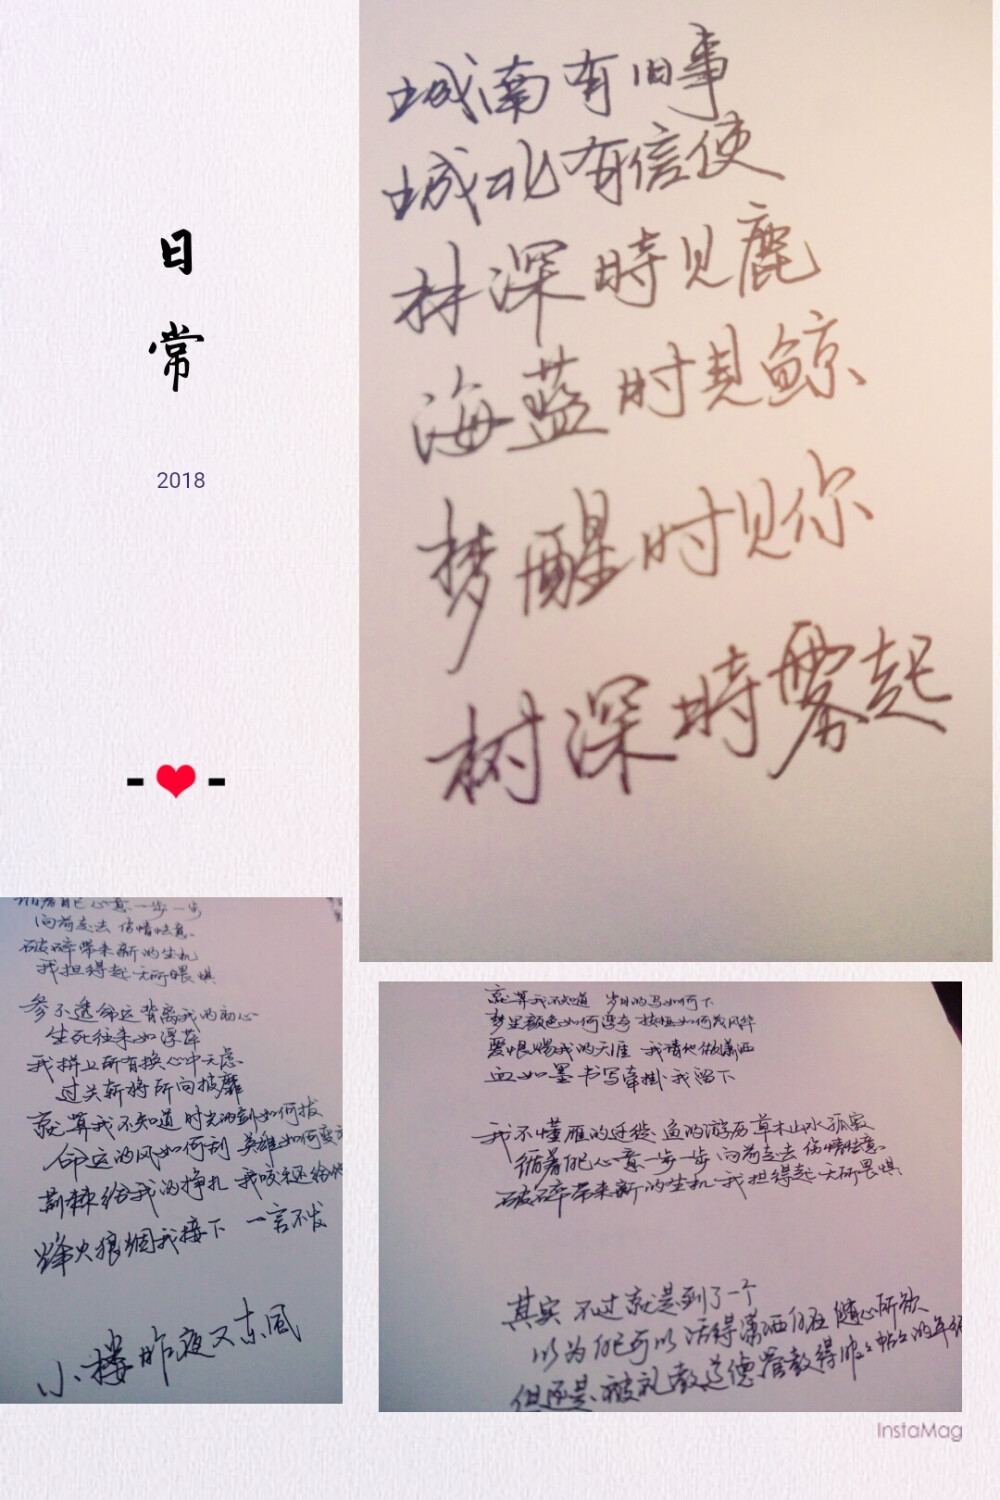 日
常
2018
城南有旧事
城北有信使
林深時见鹿
海蓝时見鲸
梦醒时见你
树深時雾起
循着自己心意一步一步
向前走去 伤情怯意
破碎带来新的生机
我担得起 无所畏惧
参不透命运背离我的初心
生死往来如浮萍
我拼上所有换心中无虑
过关斩将所向披靡
就算我不知道 时光的剑如何拔
命运的风如何刮 英雄如何变
荆棘给我的挣扎 我咬牙还给他
烽火狼烟我接下 一言不发
小楼昨夜又东风
就算我不知道 岁月的马如何下
梦里颜色如何浮夸 按捺如何成风华
爱恨惹我的天涯 我请他做潇洒
血如墨书写牵掛 我留下
我不懂雁的迁徙 鱼的游历 草木山水孤寂
循着自己心意一步一步 向前走去 伤情怯意
破碎带来新的生机 我担得起 无所畏惧
其实 不过就是到了一个
以为自己可以活得潇洒自在 随心所欲
但还是被礼教道德管教得服服帖帖的年纪
InstaMag